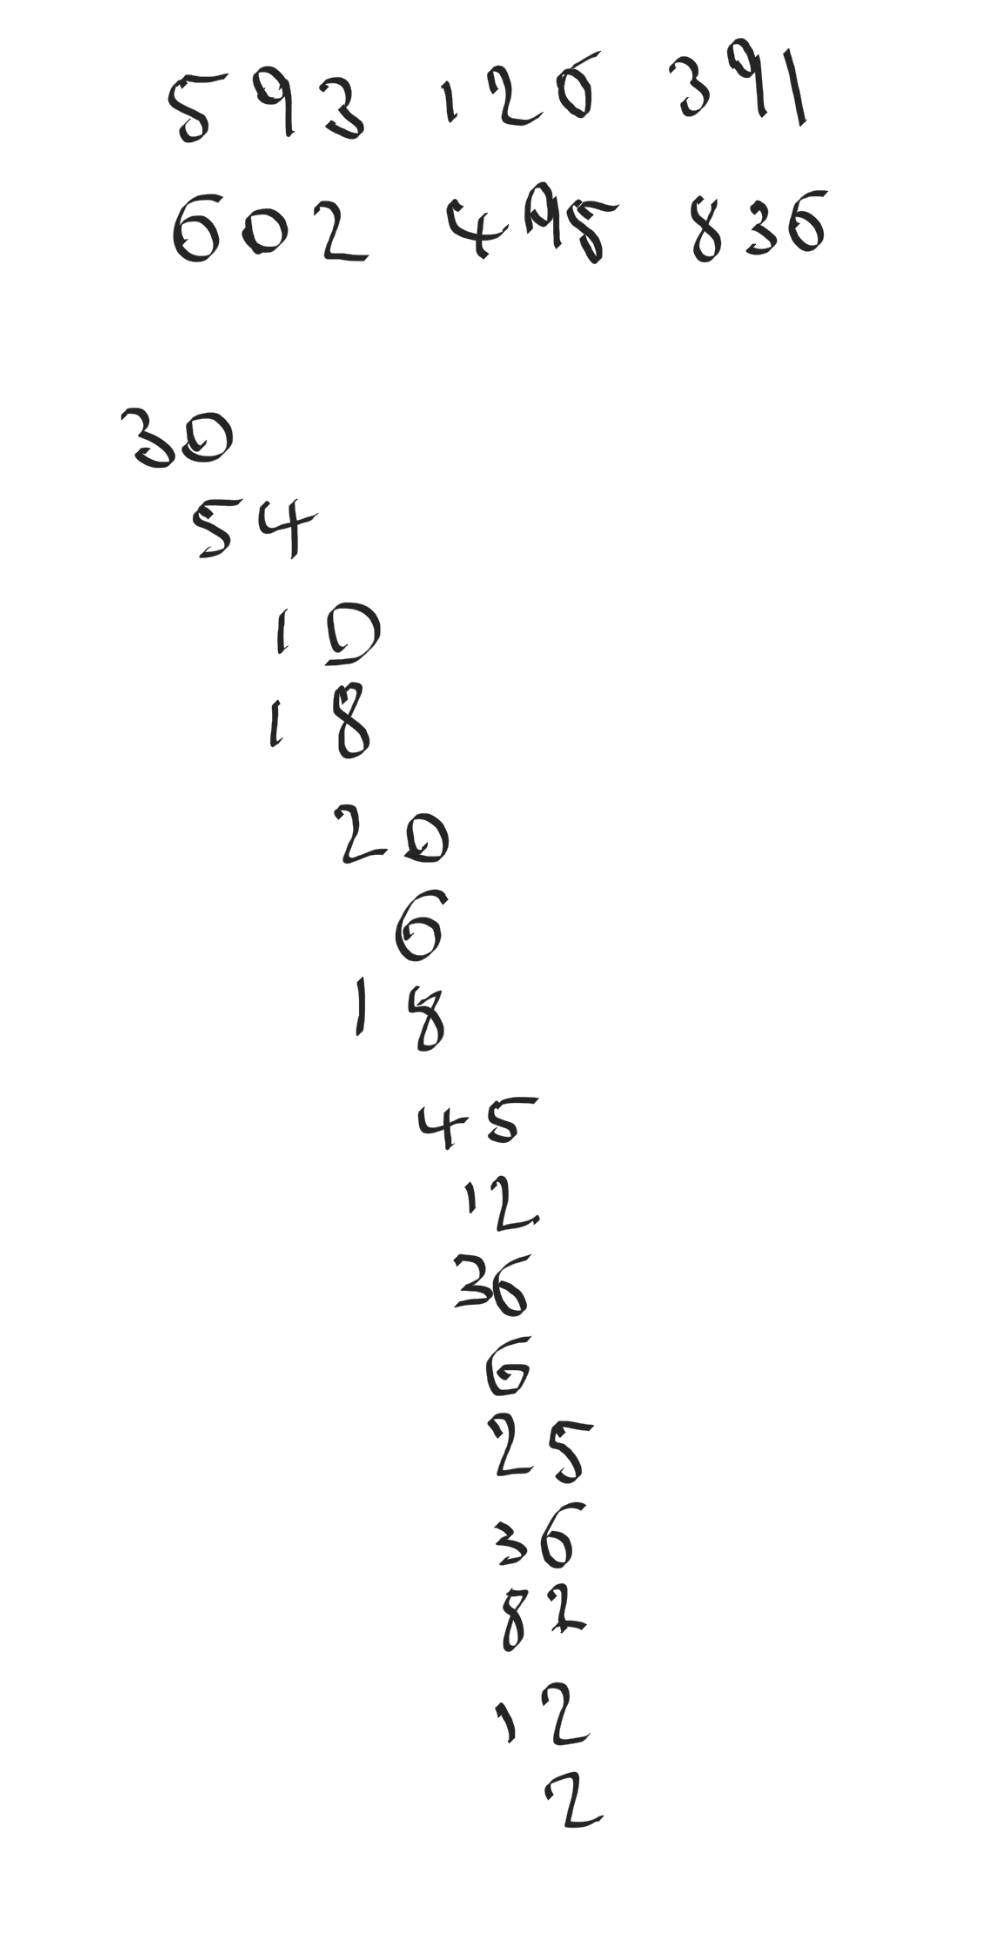 593 126 391
602 498 836
30
54
10
18
20
6
18
45
12
36
6
25
36
82
12
2